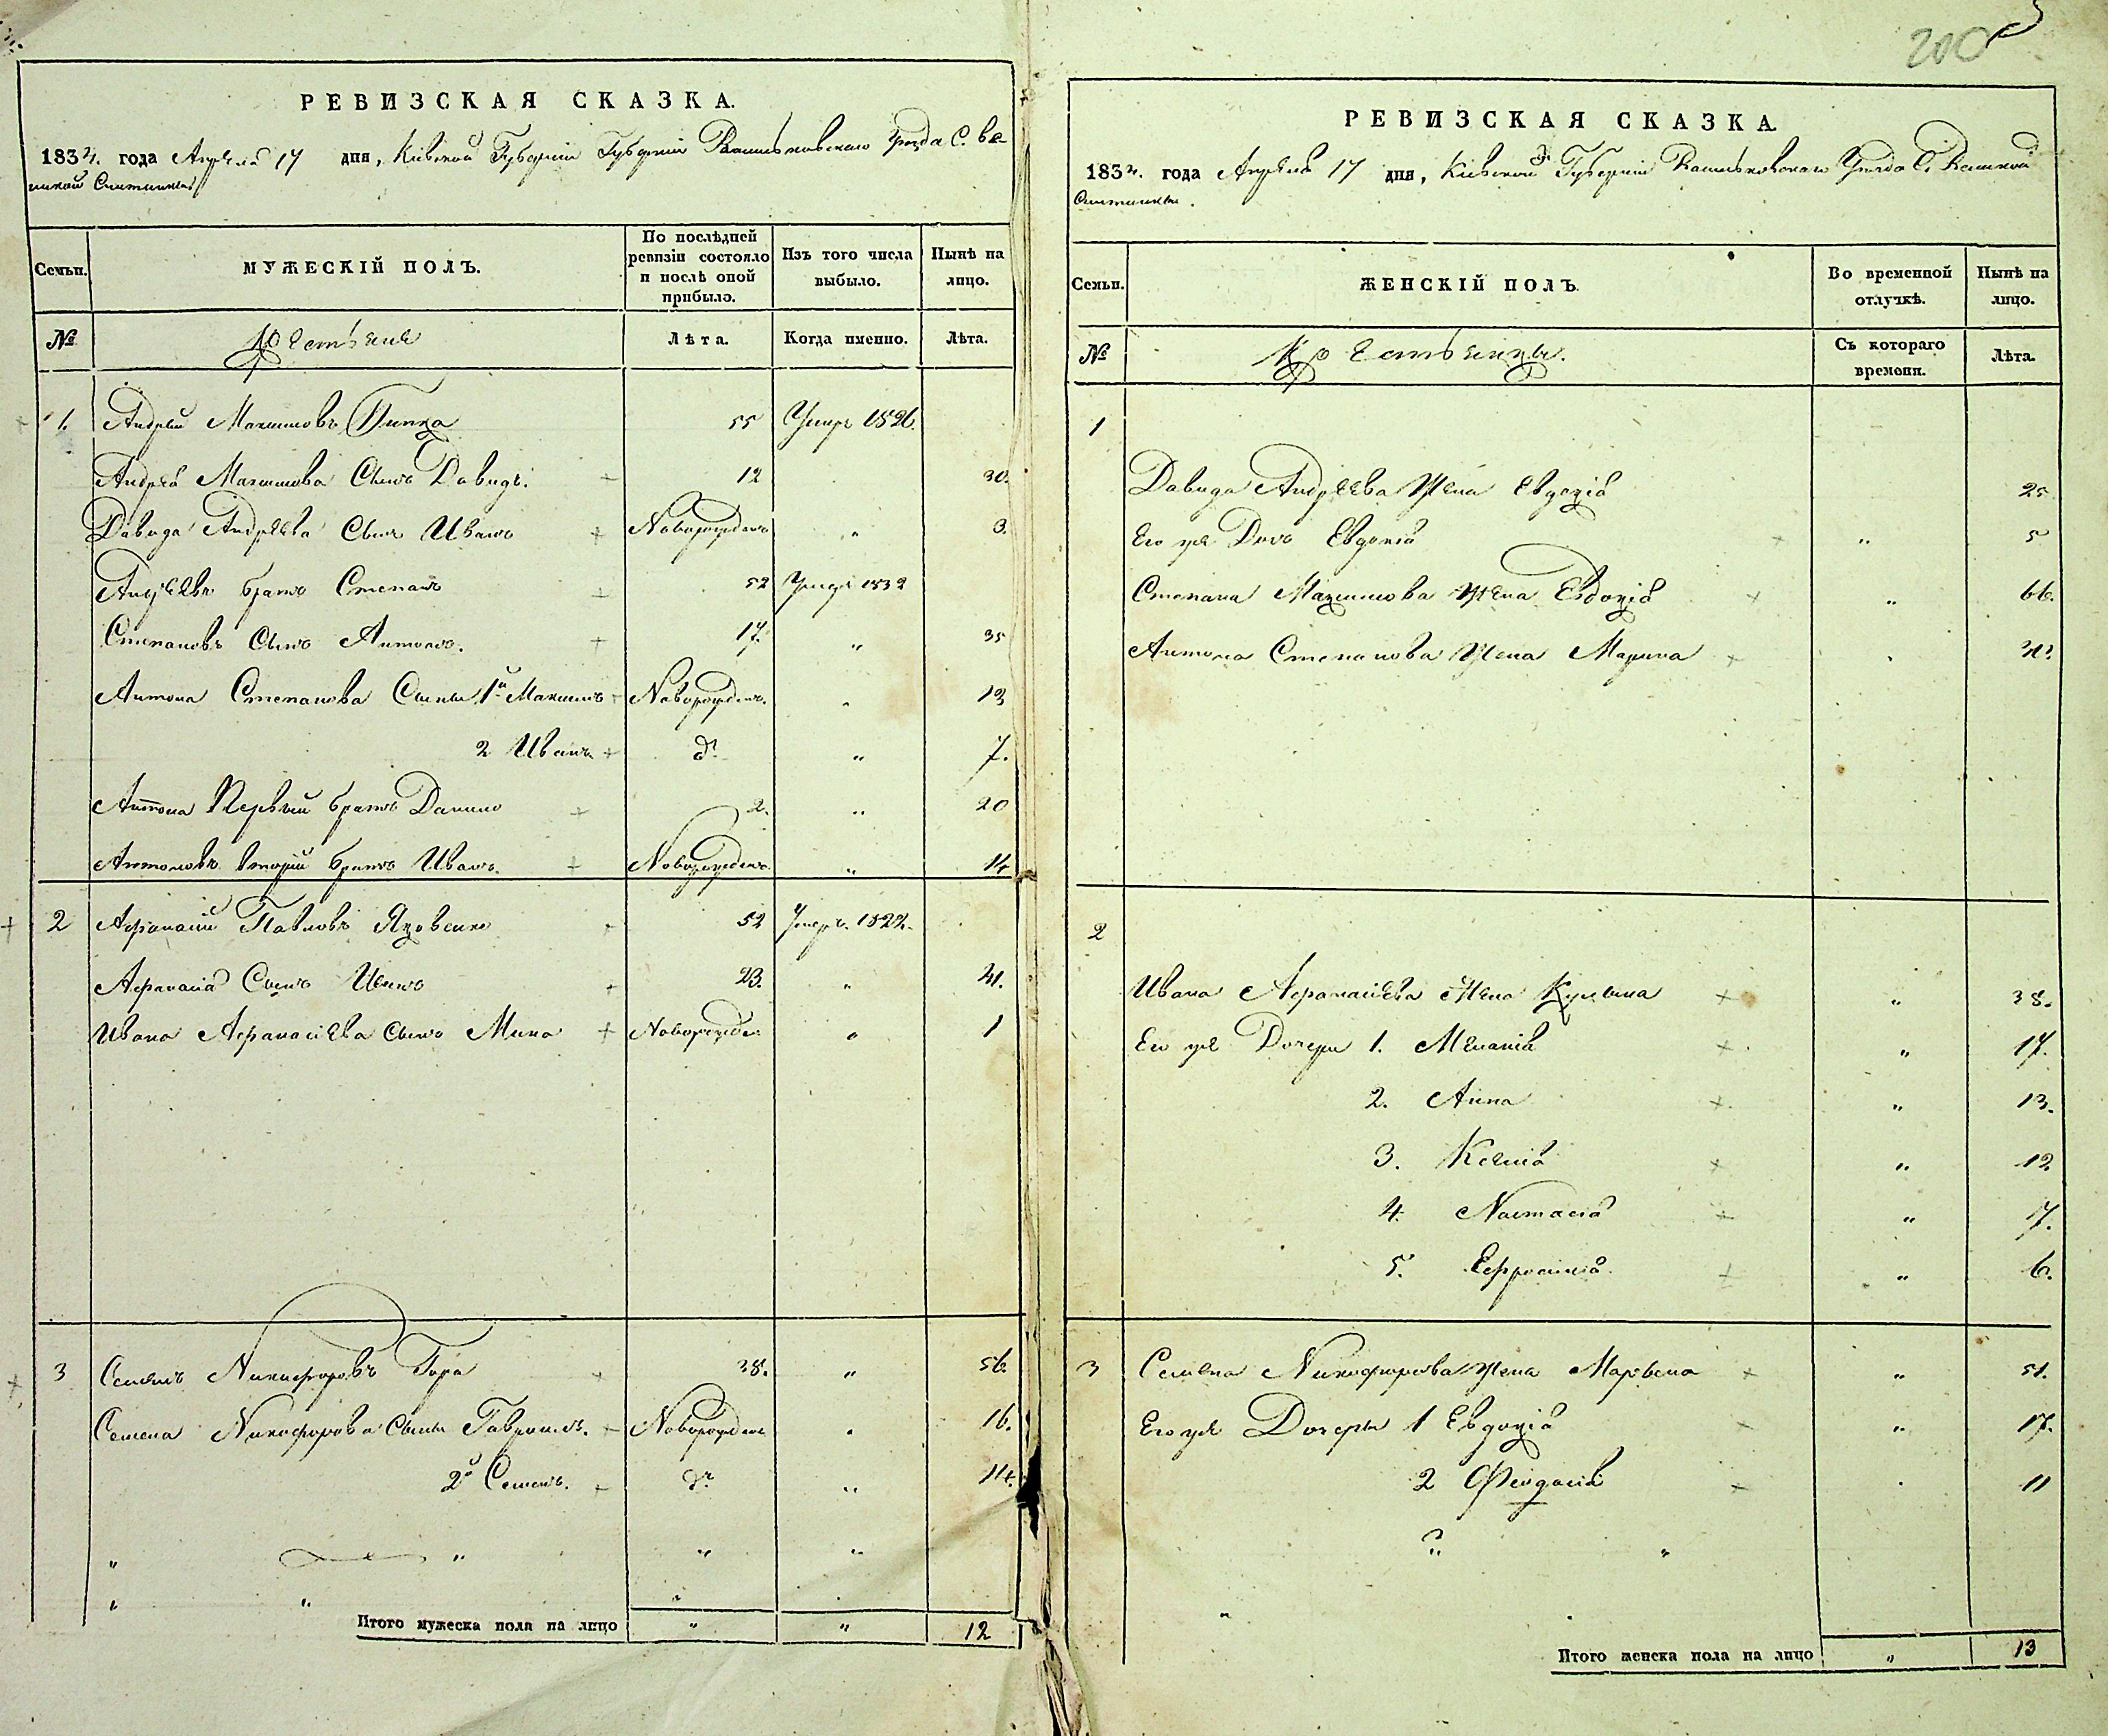 200
РЕВИЗСКАЯ СКАЗКА.
1834. года Апреля 17 дня, Кіевской Губерніи Губерніи Васильковскаго Уезда С. Ве-
ликой Снитинки
Семьи.
МУЖЕСКІЙ ПОЛЪ.
По послѣдней ревизіи состояло и послѣ оной прибыло.
Изъ того числа выбыло.
Нынѣ на лицо.
№
Крестьяне
Лѣта.
Когда именно.
Лѣта.
1. Андрей Максимовъ 55 Умре 1826.
Андрея Максимова Сынъ Давидъ. 12 30.
Давида Андреева Сынъ Иванъ Новорожденъ „ 3.
Андреевъ братъ Степанъ 52 Умре 1832
Степановъ Сынъ Антонъ. 17. „ 35
Антона Степанова Сыны 1й Максимъ Новорожденъ. „ 13
2 Иванъ дº „ 7.
Антона Первый братъ Данило 2. „ 20
Антоновъ вторый братъ Иванъ. Новорожденъ „ 14
2 Афанасій Павловъ Яковенко 52 Умеръ. 1824.
Афанасія Сынъ Иванъ 23. „ 41.
Ивана Афанасіева сынъ Мина Новорожден „ 1
3 Семенъ Никифоровъ Гора 38. „ 56.
Семена Никифорова Сыны Гаврилъ. Новорожденъ „ 16.
2й Семенъ. дº „ 14.
„ „ „ „
„ „ „
Итого мужеска пола на лицо „ „ 12
РЕВИЗСКАЯ СКАЗКА
1834. года Апреля 17 дня, Кіевской Губерніи Васильковскаго Уезда С. Великой
Снитинки.
Семьи.
ЖЕНСКІЙ ПОЛЪ.
Во временной отлучкѣ.
Нынѣ на лицо.
№
Крестьянки.
Съ котораго времени.
Лѣта.
1
Давида Андреева Жена Евдокія 25
Его же Дочь Евдокія „ 5
Степана Максимова Жена Евдокія „ 66.
Антона Степанова Жена Марина
2
Ивана Афанасіева Жена „ 38.
Его же Дочери 1. Меланія „ 17.
2. Анна „ 13.
3. Ксенія „ 12.
4. Настасія „ 7.
5. Ефросинія „ 6.
3 Семена Никифорова жена Марьяна „ 51.
Его же Дочери 1 Евдокія „ 17.
2 Феодосія 11
„ „
„
Итого женска пола на лицо „ 13